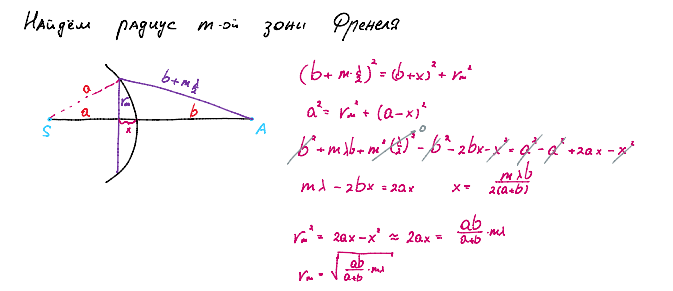 Найдём радиус m-ой зоны Френеля
a
a
b+mλ/2
rₘ
x
b
S
A
(b+m·λ/2)² = (b+x)² + rₘ²
a² = rₘ² + (a-x)²
b² + mλb + m²(λ/2)²→0 - b² - 2bx - x² = a² - a² + 2ax - x²
mλ - 2bx = 2ax x = mλb/2(a+b)
rₘ² = 2ax - x² ≈ 2ax = ab/a+b · mλ
rₘ = √(ab/a+b · mλ)